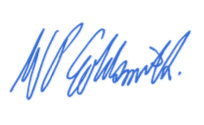 WP Goldsmith.